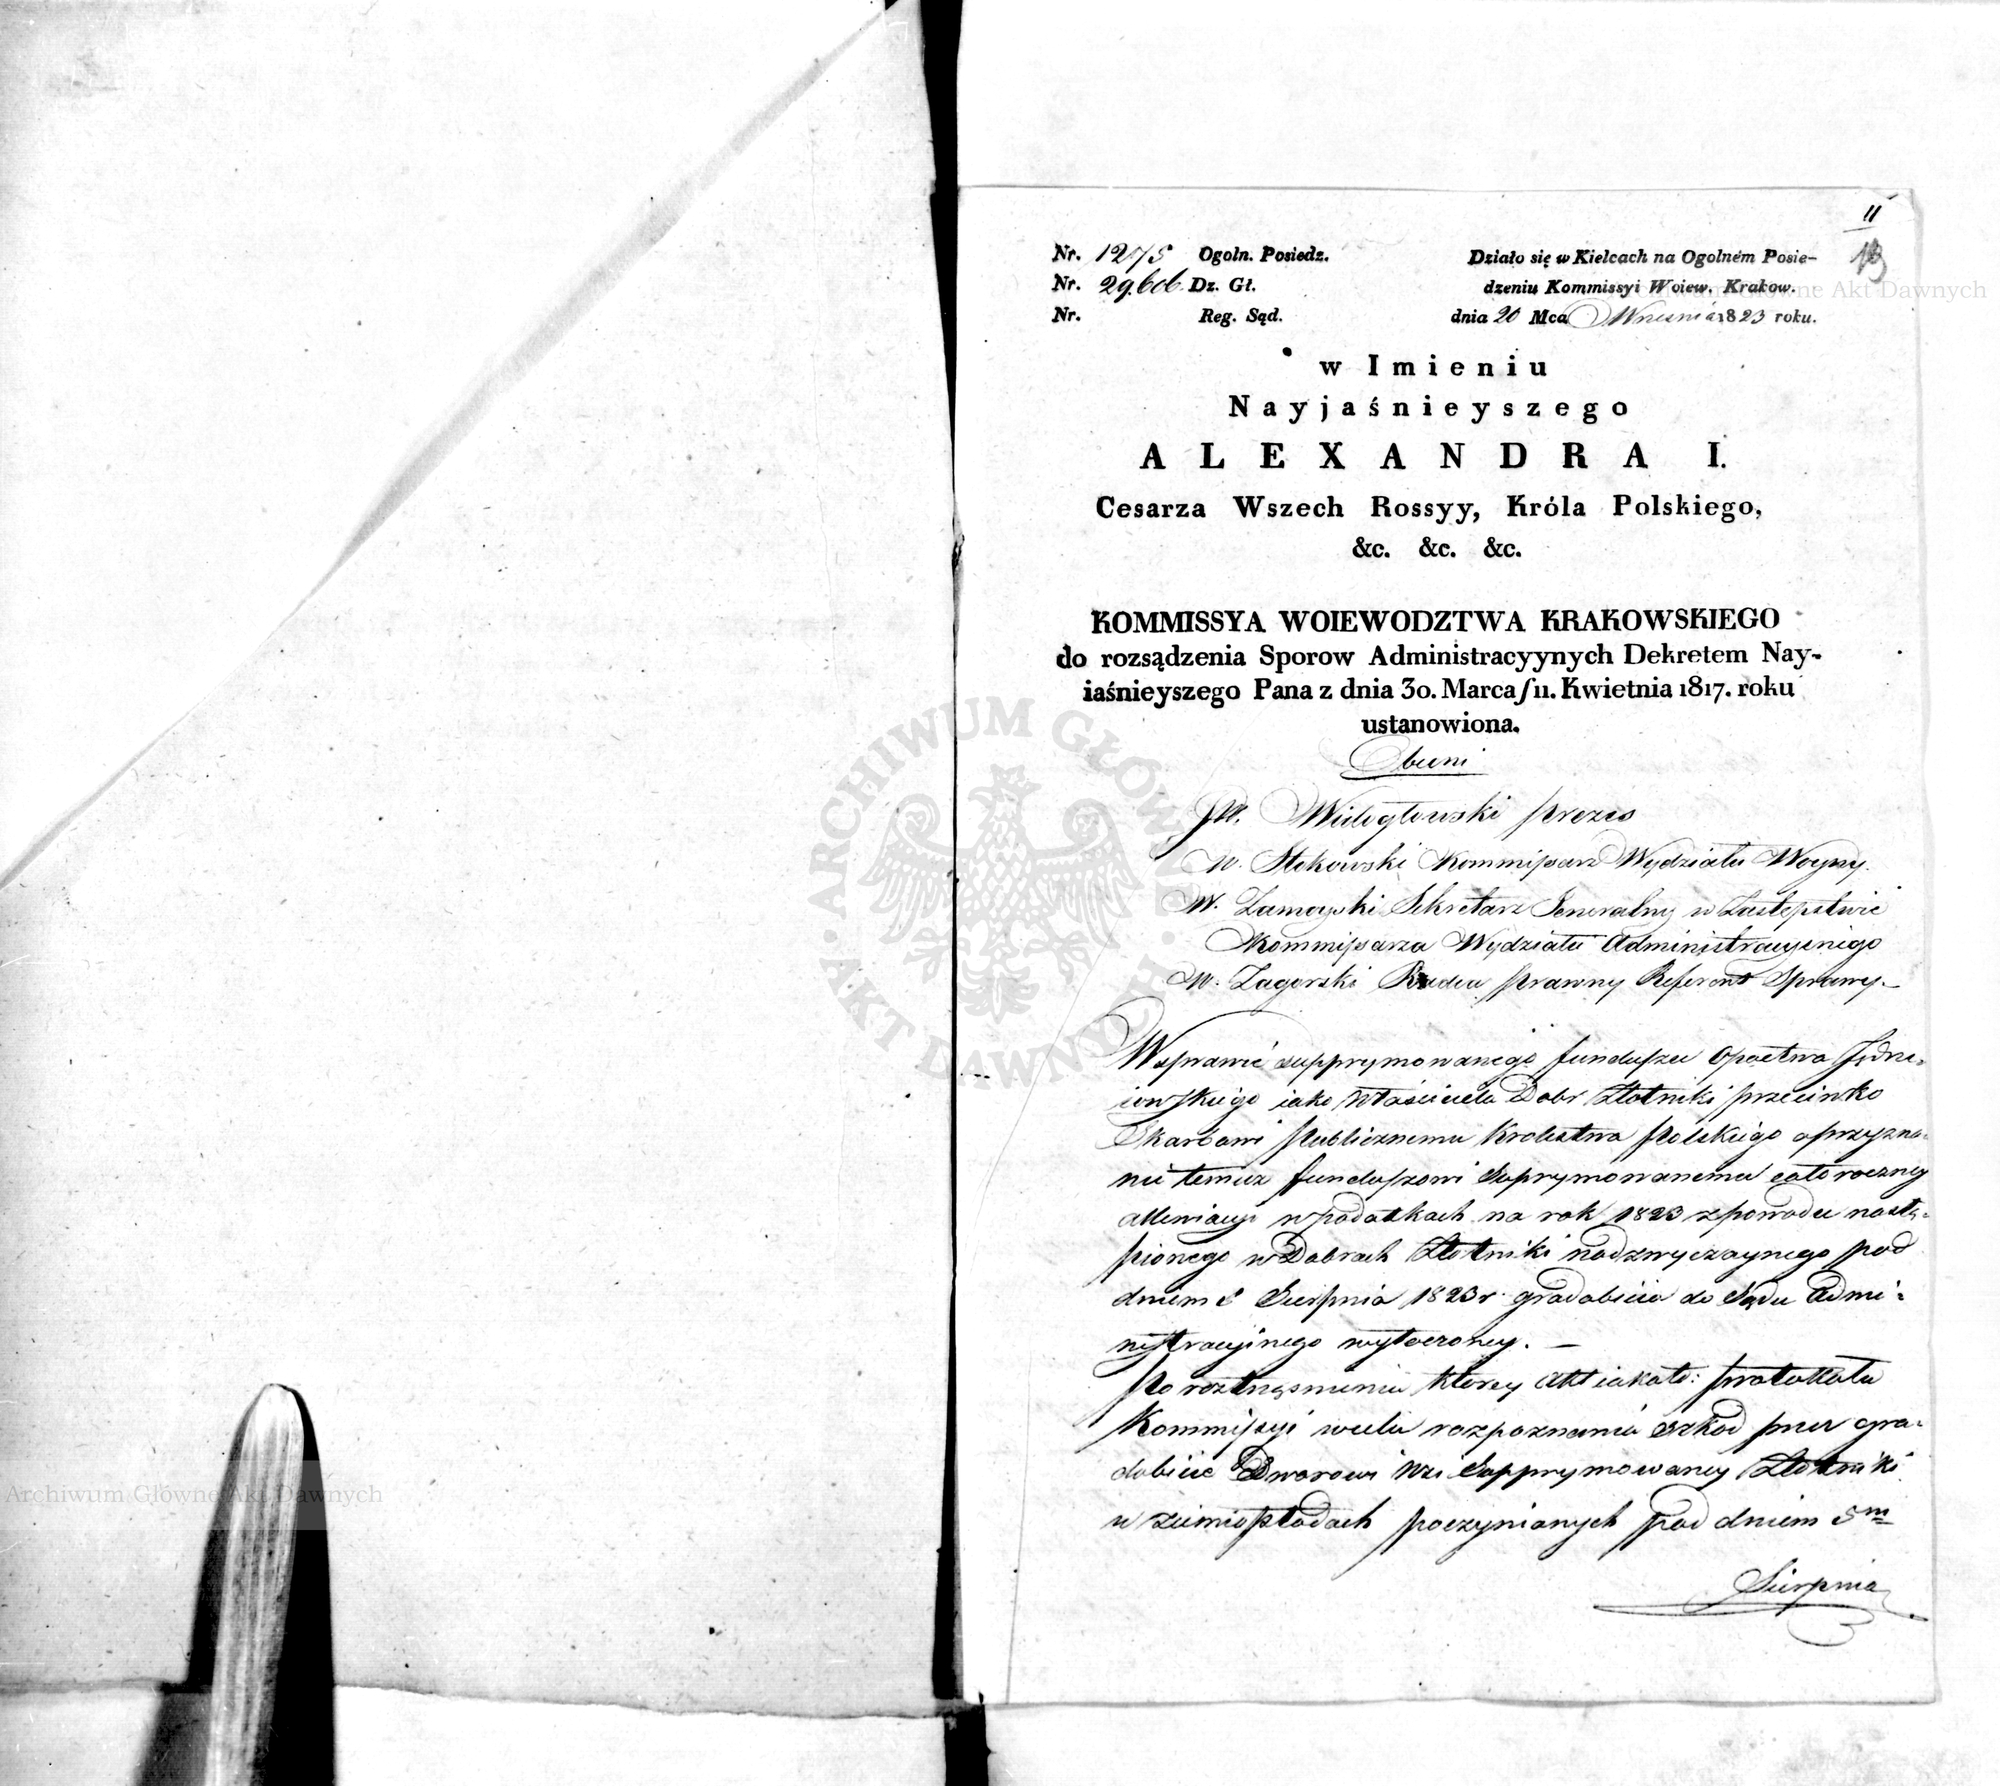 11
13
Nr. 1275 Ogoln. Posiedz.
Nr. 29.606. Dz. Gł.
Nr. Reg. Sąd.
Działo się w Kielcach na Ogolném Posie-
dzeniu Kommissyi Woiew. Krakow.
dnia 20 Mca Wrzesnia 1823 roku.
w Imieniu
Nayjaśnieyszego
ALEXANDRA I.
Cesarza Wszech Rossyy, Króla Polskiego,
&c. &c. &c.
KOMMISSYA WOIEWODZTWA KRAKOWSKIEGO
do rozsądzenia Sporow Administracyynych Dekretem Nay-
iaśnieyszego Pana z dnia 30. Marca/11. Kwietnia 1817. roku
ustanowiona.
Obecni
JW. Wielogłowski Prezes
W. Stokowski Kommissarz Wydziału Woyny.
W. Zamoyski Sekretarz Generalny w Zastępstwie
Kommissarza Wydziału Administracyinego
W. Zagorski Radca Prawny Referent Sprawy.
W sprawie supprymowanego funduszu Opactwa Jędrze-
iowskiego iako Właściciela Dobr Złotniki przeciwko
Skarbowi Publicznemu Krolestwa Polskiego o przyzna-
nie temuz funduszowi Supprymowanemu całoroczney
allewiacyi w podatkach na rok 1823 z powodu nastą-
pionego w Dobrach Złotniki nadzwyczaynego pod
dniem 5 Sierpnia 1823 r. gradobicia do Sądu Admi-
nistracyinego wytoczoney. —
Po roztrząśnieniu ktorey Akt iakoto: protokołu
Kommissyi wcelu rozpoznania szkod przez gra-
dobicie Dworowi Wsi Supprymowaney Złotniki
w ziemiopłodach poczynionych pod dniem 5m
Sierpnia
ARCHIWUM GŁÓWNE AKT DAWNYCH
Archiwum Główne Akt Dawnych
Archiwum Główne Akt Dawnych